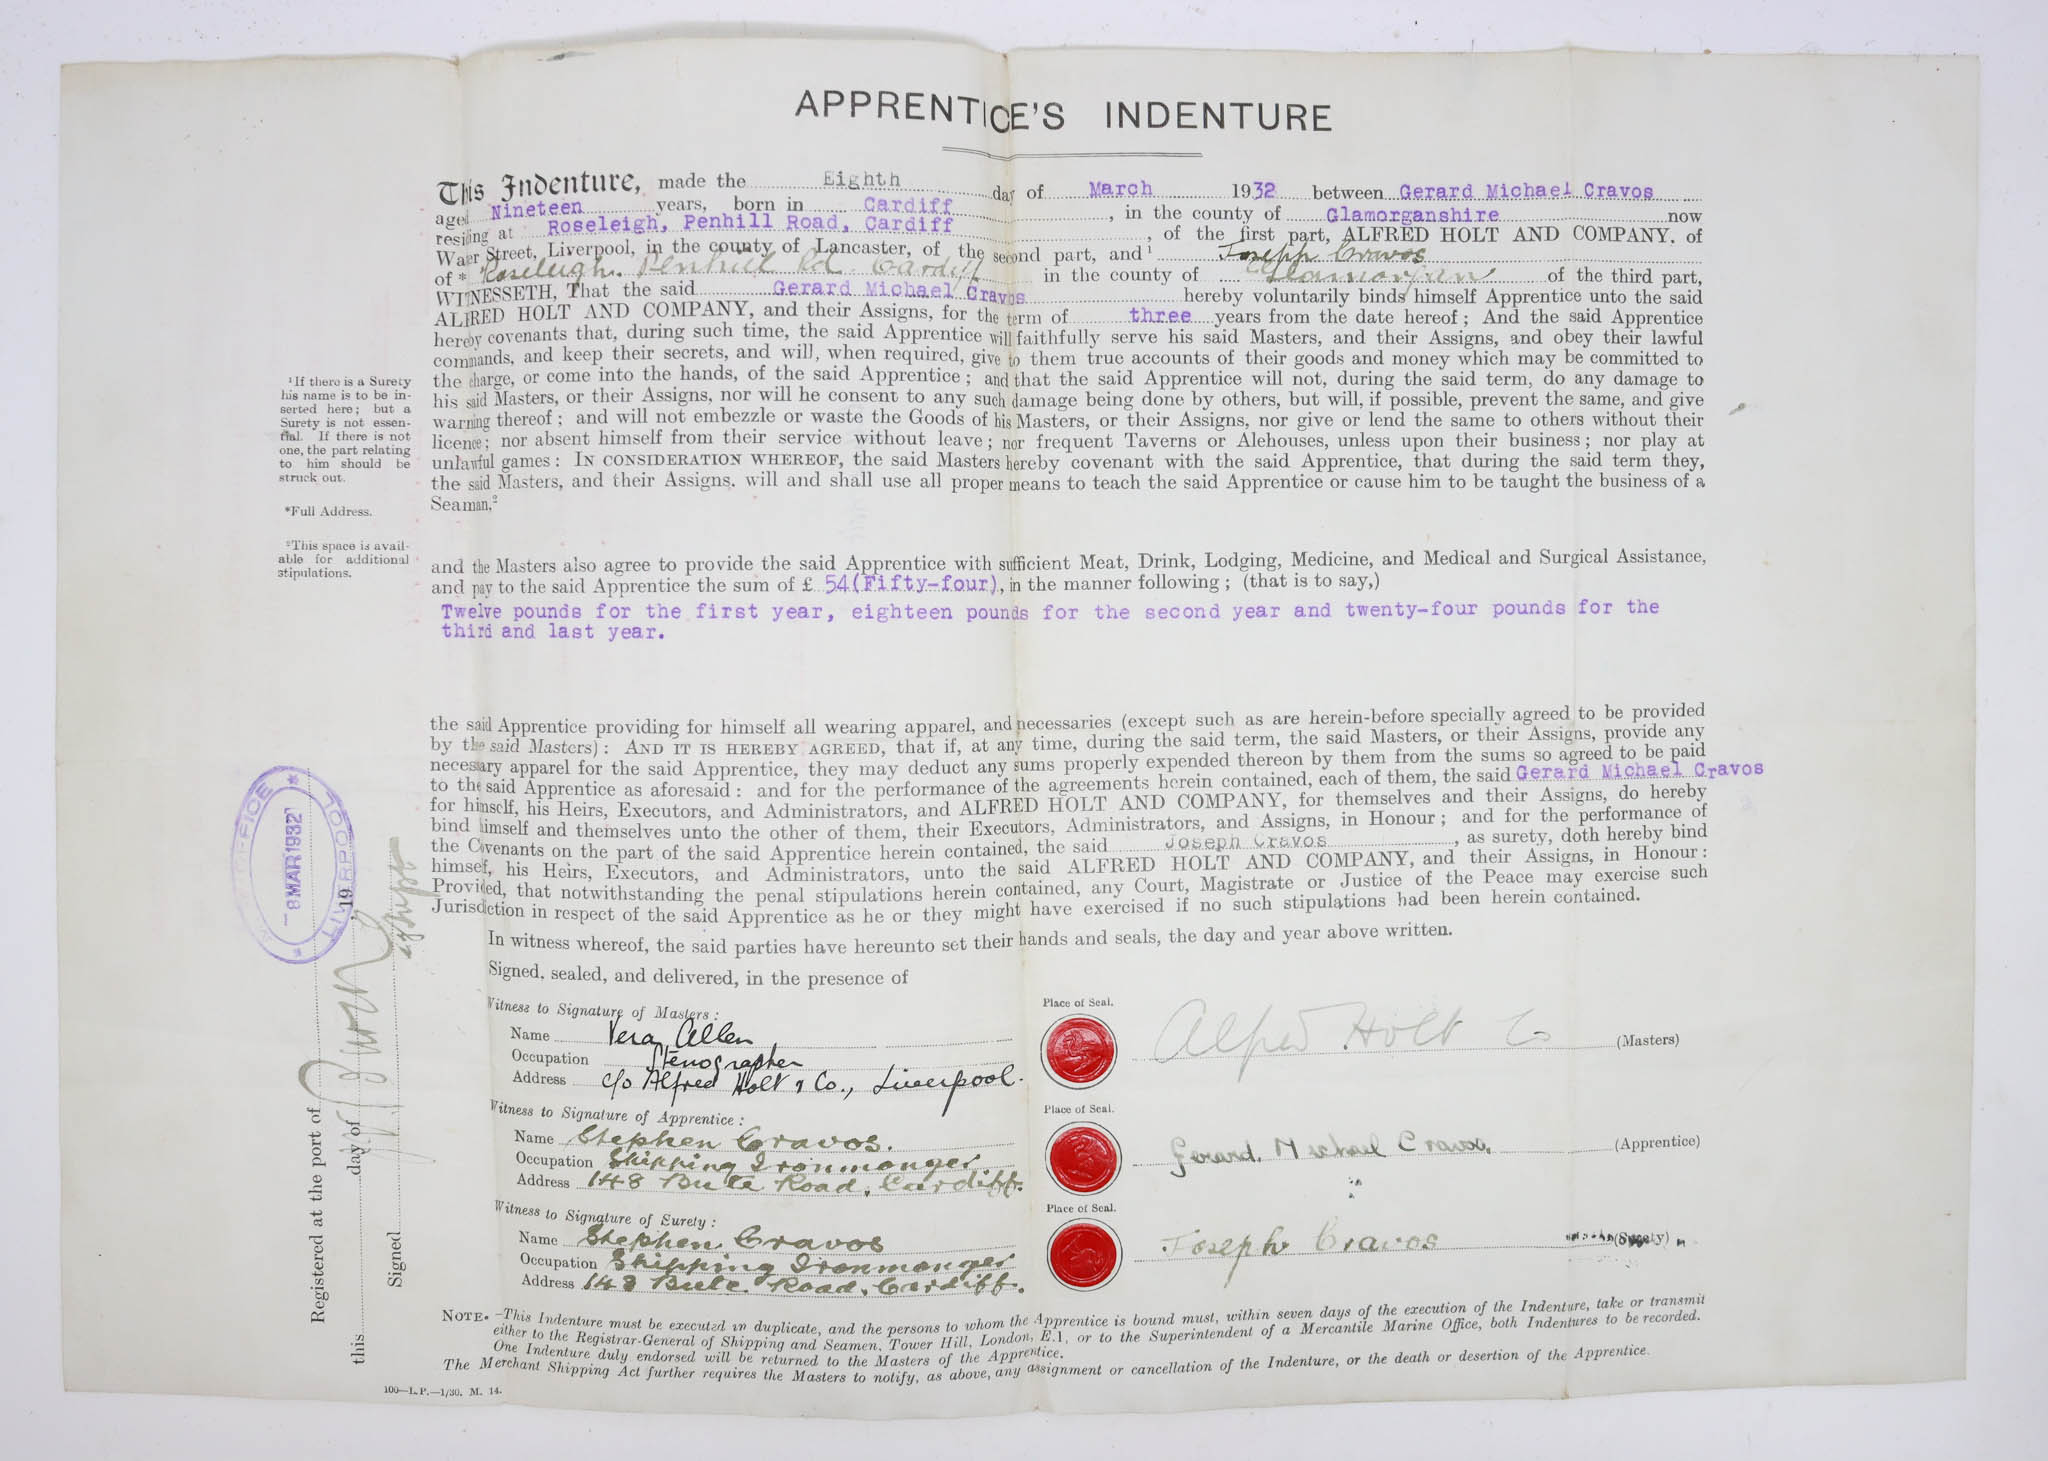 APPRENTICE'S INDENTURE
This Indenture, made the Eighth day of March 1932 between Gerard Michael Cravos
aged Nineteen years, born in Cardiff, in the county of Glamorganshire now
residing at Roseleigh, Penhill Road, Cardiff, of the first part, ALFRED HOLT AND COMPANY, of
Water Street, Liverpool, in the county of Lancaster, of the second part, and¹ Joseph Cravos
of * Roseleigh. Penhill Rd. Cardiff in the county of Glamorgan of the third part,
WITNESSETH, That the said Gerard Michael Cravos hereby voluntarily binds himself Apprentice unto the said
ALFRED HOLT AND COMPANY, and their Assigns, for the term of three years from the date hereof; And the said Apprentice
hereby covenants that, during such time, the said Apprentice will faithfully serve his said Masters, and their Assigns, and obey their lawful
commands, and keep their secrets, and will, when required, give to them true accounts of their goods and money which may be committed to
the charge, or come into the hands, of the said Apprentice; and that the said Apprentice will not, during the said term, do any damage to
his said Masters, or their Assigns, nor will he consent to any such damage being done by others, but will, if possible, prevent the same, and give
warning thereof; and will not embezzle or waste the Goods of his Masters, or their Assigns, nor give or lend the same to others without their
licence; nor absent himself from their service without leave; nor frequent Taverns or Alehouses, unless upon their business; nor play at
unlawful games: IN CONSIDERATION WHEREOF, the said Masters hereby covenant with the said Apprentice, that during the said term they,
the said Masters, and their Assigns, will and shall use all proper means to teach the said Apprentice or cause him to be taught the business of a
Seaman,²
¹If there is a Surety
his name is to be in-
serted here; but a
Surety is not essen-
tial. If there is not
one, the part relating
to him should be
struck out.
*Full Address.
²This space is avail-
able for additional
stipulations.
and the Masters also agree to provide the said Apprentice with sufficient Meat, Drink, Lodging, Medicine, and Medical and Surgical Assistance,
and pay to the said Apprentice the sum of £ 54(Fifty-four), in the manner following; (that is to say,)
Twelve pounds for the first year, eighteen pounds for the second year and twenty-four pounds for the
third and last year.
the said Apprentice providing for himself all wearing apparel, and necessaries (except such as are herein-before specially agreed to be provided
by the said Masters): AND IT IS HEREBY AGREED, that if, at any time, during the said term, the said Masters, or their Assigns, provide any
necessary apparel for the said Apprentice, they may deduct any sums properly expended thereon by them from the sums so agreed to be paid
to the said Apprentice as aforesaid: and for the performance of the agreements herein contained, each of them, the said Gerard Michael Cravos
for himself, his Heirs, Executors, and Administrators, and ALFRED HOLT AND COMPANY, for themselves and their Assigns, do hereby
bind himself and themselves unto the other of them, their Executors, Administrators, and Assigns, in Honour; and for the performance of
the Covenants on the part of the said Apprentice herein contained, the said Joseph Cravos, as surety, doth hereby bind
himself, his Heirs, Executors, and Administrators, unto the said ALFRED HOLT AND COMPANY, and their Assigns, in Honour:
Provided, that notwithstanding the penal stipulations herein contained, any Court, Magistrate or Justice of the Peace may exercise such
Jurisdiction in respect of the said Apprentice as he or they might have exercised if no such stipulations had been herein contained.
In witness whereof, the said parties have hereunto set their hands and seals, the day and year above written.
Signed, sealed, and delivered, in the presence of
Witness to Signature of Masters:
Name Vera Allen
Occupation Stenographer
Address c/o Alfred Holt & Co., Liverpool.
Place of Seal.
Alfred Holt Co (Masters)
Witness to Signature of Apprentice:
Name Stephen Cravos.
Occupation Shipping Ironmonger
Address 148 Bute Road, Cardiff.
Place of Seal.
Gerard. Michael Cravos. (Apprentice)
Witness to Signature of Surety:
Name Stephen Cravos
Occupation Shipping Ironmonger
Address 148 Bute Road, Cardiff.
Place of Seal.
Joseph Cravos (Surety)
Registered at the port of
this day of 19
Signed
OFFICE
8 MAR 1932
LIVERPOOL
NOTE.—This Indenture must be executed in duplicate, and the persons to whom the Apprentice is bound must, within seven days of the execution of the Indenture, take or transmit
either to the Registrar-General of Shipping and Seamen, Tower Hill, London, E.1, or to the Superintendent of a Mercantile Marine Office, both Indentures to be recorded.
One Indenture duly endorsed will be returned to the Masters of the Apprentice.
The Merchant Shipping Act further requires the Masters to notify, as above, any assignment or cancellation of the Indenture, or the death or desertion of the Apprentice.
100—L.P.—1/30. M. 14.